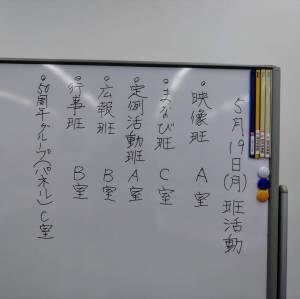 5月19日(月) 班活動
・映像班 A室
・まなび班 C室
・定例活動班 A室
・広報班 B室
・行事班 B室
・50周年グループ(パネル) C室